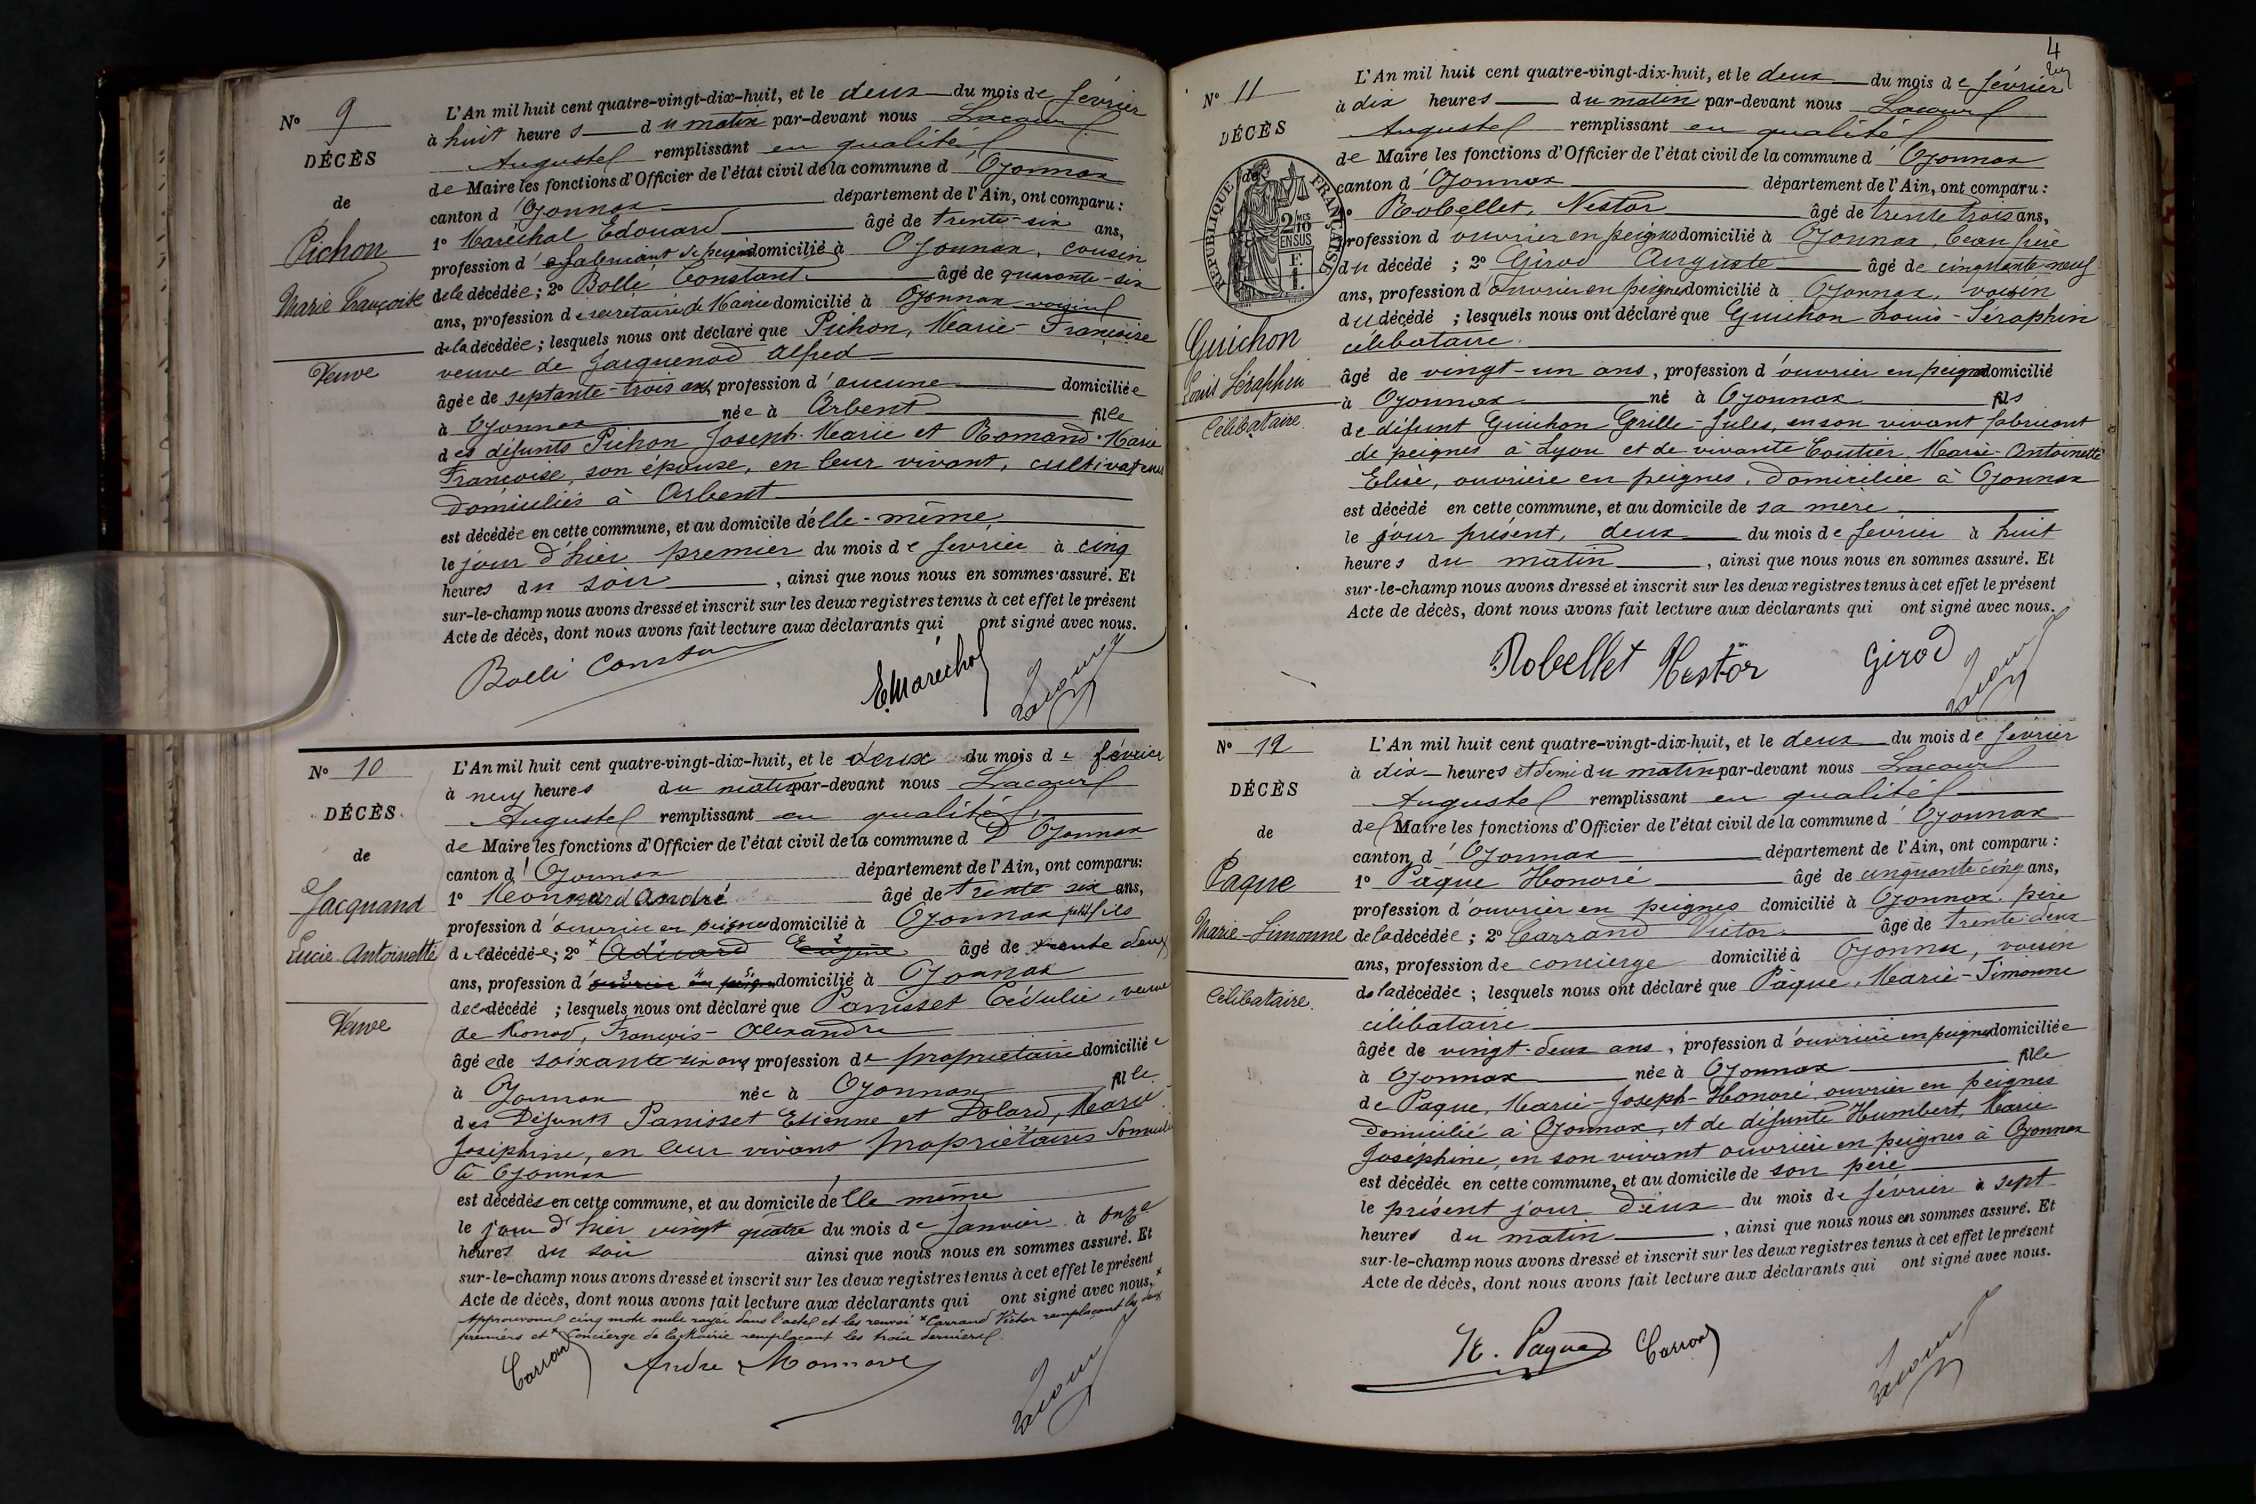 N° 9
DÉCÈS
de
Pichon
Marie Françoise
Veuve
L'An mil huit cent quatre-vingt-dix-huit, et le deux du mois de février
à huit heures du matin par-devant nous Lacour
Auguste remplissant en qualité
de Maire les fonctions d'Officier de l'état civil de la commune d'Oyonnax
canton d'Oyonnax département de l'Ain, ont comparu :
1° Maréchal Edouard âgé de trente-six ans,
profession d fabricant de peignes domicilié à Oyonnax, cousin
de la décédée ; 2° Bollé Constant âgé de quarante-six
ans, profession de secrétaire de Mairie domicilié à Oyonnax voisin
de la décédée ; lesquels nous ont déclaré que Pichon, Marie-Françoise
veuve de Jacquenod Alfred
âgée de septante-trois ans, profession d'aucune domiciliée
à Oyonnax née à Arbent fille
des défunts Pichon Joseph-Marie et Romand-Marie
Françoise, son épouse, en leur vivant, cultivateurs
domiciliés à Arbent
est décédée en cette commune, et au domicile d'elle-même
le jour d'hier premier du mois de février à cinq
heures du soir , ainsi que nous nous en sommes assuré. Et
sur-le-champ nous avons dressé et inscrit sur les deux registres tenus à cet effet le présent
Acte de décès, dont nous avons fait lecture aux déclarants qui ont signé avec nous.
E. Maréchal Lacour
N° 10
DÉCÈS
de
Jacquand
Lucie Antoinette
Veuve
L'An mil huit cent quatre-vingt-dix-huit, et le deux du mois de février
à neuf heures du matin par-devant nous Lacour
Auguste remplissant en qualité
de Maire les fonctions d'Officier de l'état civil de la commune d D'Oyonnax
canton d'Oyonnax département de l'Ain, ont comparu :
1° Monnard André âgé de trente six ans,
profession d'ouvrier en peignes domicilié à Oyonnax petit fils
de la décédée ; 2° × Eugène âgé de trente deux
ans, profession d'ouvrier en peignes domicilié à Oyonnax
de la décédé ; lesquels nous ont déclaré que Panisset Cédulie, veuve
de Monod, François-Alexandre
âgée de soixante-six ans profession de propriétaire domiciliée
à Oyonnax née à Oyonnax fille
des Défunts Panisset Etienne et Dolard, Marie
Joséphine, en leur vivant propriétaires domiciliés
à Oyonnax
est décédée en cette commune, et au domicile d'elle même
le jour d'hier vingt quatre du mois de Janvier à onze
heures du soir ainsi que nous nous en sommes assuré. Et
sur-le-champ nous avons dressé et inscrit sur les deux registres tenus à cet effet le présent
Acte de décès, dont nous avons fait lecture aux déclarants qui ont signé avec nous. ×
Approuvons cinq mots nuls rayés dans l'acte et les renvoi × Carrand Victor remplaçant les deux
premiers et × Concierge de la Mairie remplaçant les trois derniers
Carrand Andre Monnard Lacour
4
N° 11
DÉCÈS
de
RÉPUBLIQUE FRANÇAISE
2/10 EN SUS
Guichon
Louis Séraphin
Célibataire.
L'An mil huit cent quatre-vingt-dix-huit, et le deux du mois de février
à dix heures du matin par-devant nous Lacour
Auguste remplissant en qualité
de Maire les fonctions d'Officier de l'état civil de la commune d'Oyonnax
canton d'Oyonnax département de l'Ain, ont comparu :
1° Robellet, Nestor âgé de trente trois ans,
profession d'ouvrier en peignes domicilié à Oyonnax, beau frère
du décédé ; 2° Girod Auguste âgé de cinquante-neuf
ans, profession d'ouvrier en peignes domicilié à Oyonnax, voisin
du décédé ; lesquels nous ont déclaré que Guichon Louis-Séraphin
célibataire.
âgé de vingt-un ans, profession d'ouvrier en peignes domicilié
à Oyonnax né à Oyonnax fils
de défunt Guichon Grille-Jules, en son vivant fabricant
de peignes à Lyon et de vivante Coutier Marie-Antoinette
Elise, ouvrière en peignes, domiciliée à Oyonnax
est décédé en cette commune, et au domicile de sa mère
le jour présent, deux du mois de février à huit
heures du matin , ainsi que nous nous en sommes assuré. Et
sur-le-champ nous avons dressé et inscrit sur les deux registres tenus à cet effet le présent
Acte de décès, dont nous avons fait lecture aux déclarants qui ont signé avec nous.
Robellet Nestor Girod Lacour
N° 12
DÉCÈS
de
Paque
Marie-Simonne
Célibataire.
L'An mil huit cent quatre-vingt-dix-huit, et le deux du mois de février
à dix heures et demi du matin par-devant nous Lacour
Auguste remplissant en qualité
de Maire les fonctions d'Officier de l'état civil de la commune d'Oyonnax
canton d'Oyonnax département de l'Ain, ont comparu :
1° Pâque Honoré âgé de cinquante cinq ans,
profession d'ouvrier en peignes domicilié à Oyonnax, père
de la décédée ; 2° Carrand Victor âgé de trente-deux
ans, profession de concierge domicilié à Oyonnax, voisin
de la décédée ; lesquels nous ont déclaré que Pâque, Marie-Simonne
célibataire
âgée de vingt-deux ans, profession d'ouvrière en peignes domiciliée
à Oyonnax née à Oyonnax fille
de Paque, Marie-Joseph-Honoré, ouvrier en peignes
domicilié à Oyonnax, et de défunte Humbert, Marie
Joséphine, en son vivant ouvrière en peignes à Oyonnax
est décédée en cette commune, et au domicile de son père
le présent jour deux du mois de février à sept
heures du matin , ainsi que nous nous en sommes assuré. Et
sur-le-champ nous avons dressé et inscrit sur les deux registres tenus à cet effet le présent
Acte de décès, dont nous avons fait lecture aux déclarants qui ont signé avec nous.
H. Paque Carrand Lacour